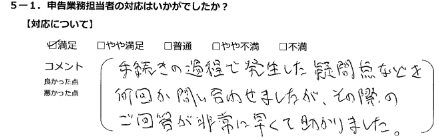 5-1.申告業務担当者の対応はいかがでしたか?
【対応について】
☑満足 □やや満足 □普通 □やや不満 □不満
コメント
良かった点
悪かった点
手続きの過程で発生した疑問点などを
何回か問い合わせましたが、その際の
ご回答が非常に早くて助かりました。